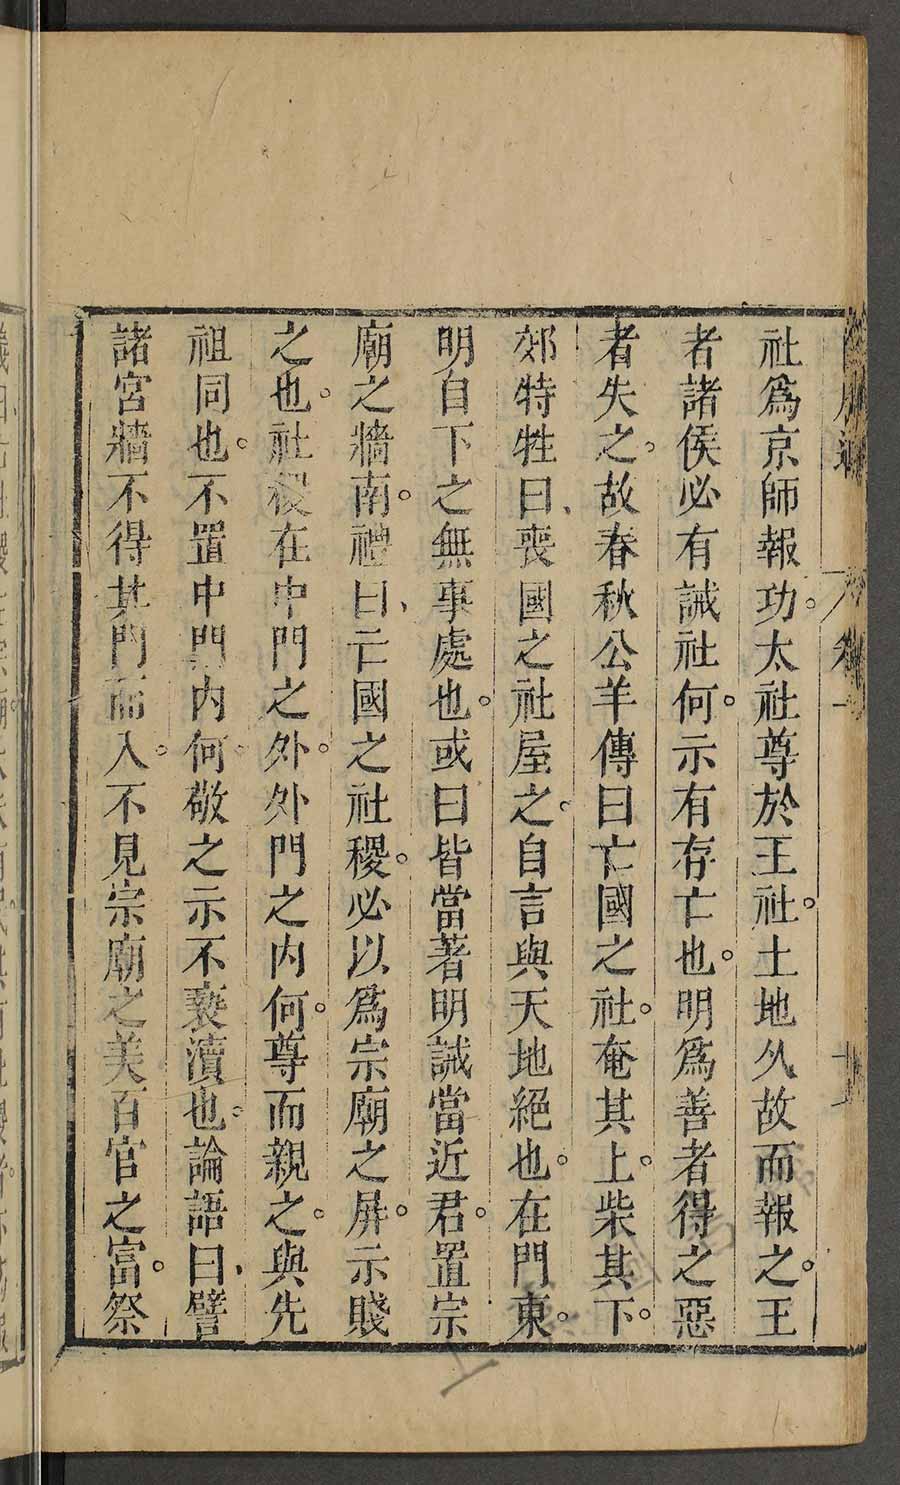 社爲京師報功。太社尊於王社。土地久故而報之。王
者諸侯必有誡社何。示有存亡也。明爲善者得之惡
者失之。故春秋公羊傳曰亡國之社。奄其上。柴其下。
郊特牲曰、喪國之社屋之。自言與天地絕也。在門東。
明自下之無事處也。或曰皆當著明誡當近君。置宗
廟之牆南。禮曰、亡國之社稷。必以爲宗廟之屏。示賤
之也。社稷在中門之外。外門之內何。尊而親之。與先
祖同也。不置中門內何。敬之示不褻瀆也。論語曰、譬
諸宮牆不得其門而入。不見宗廟之美百官之富。祭